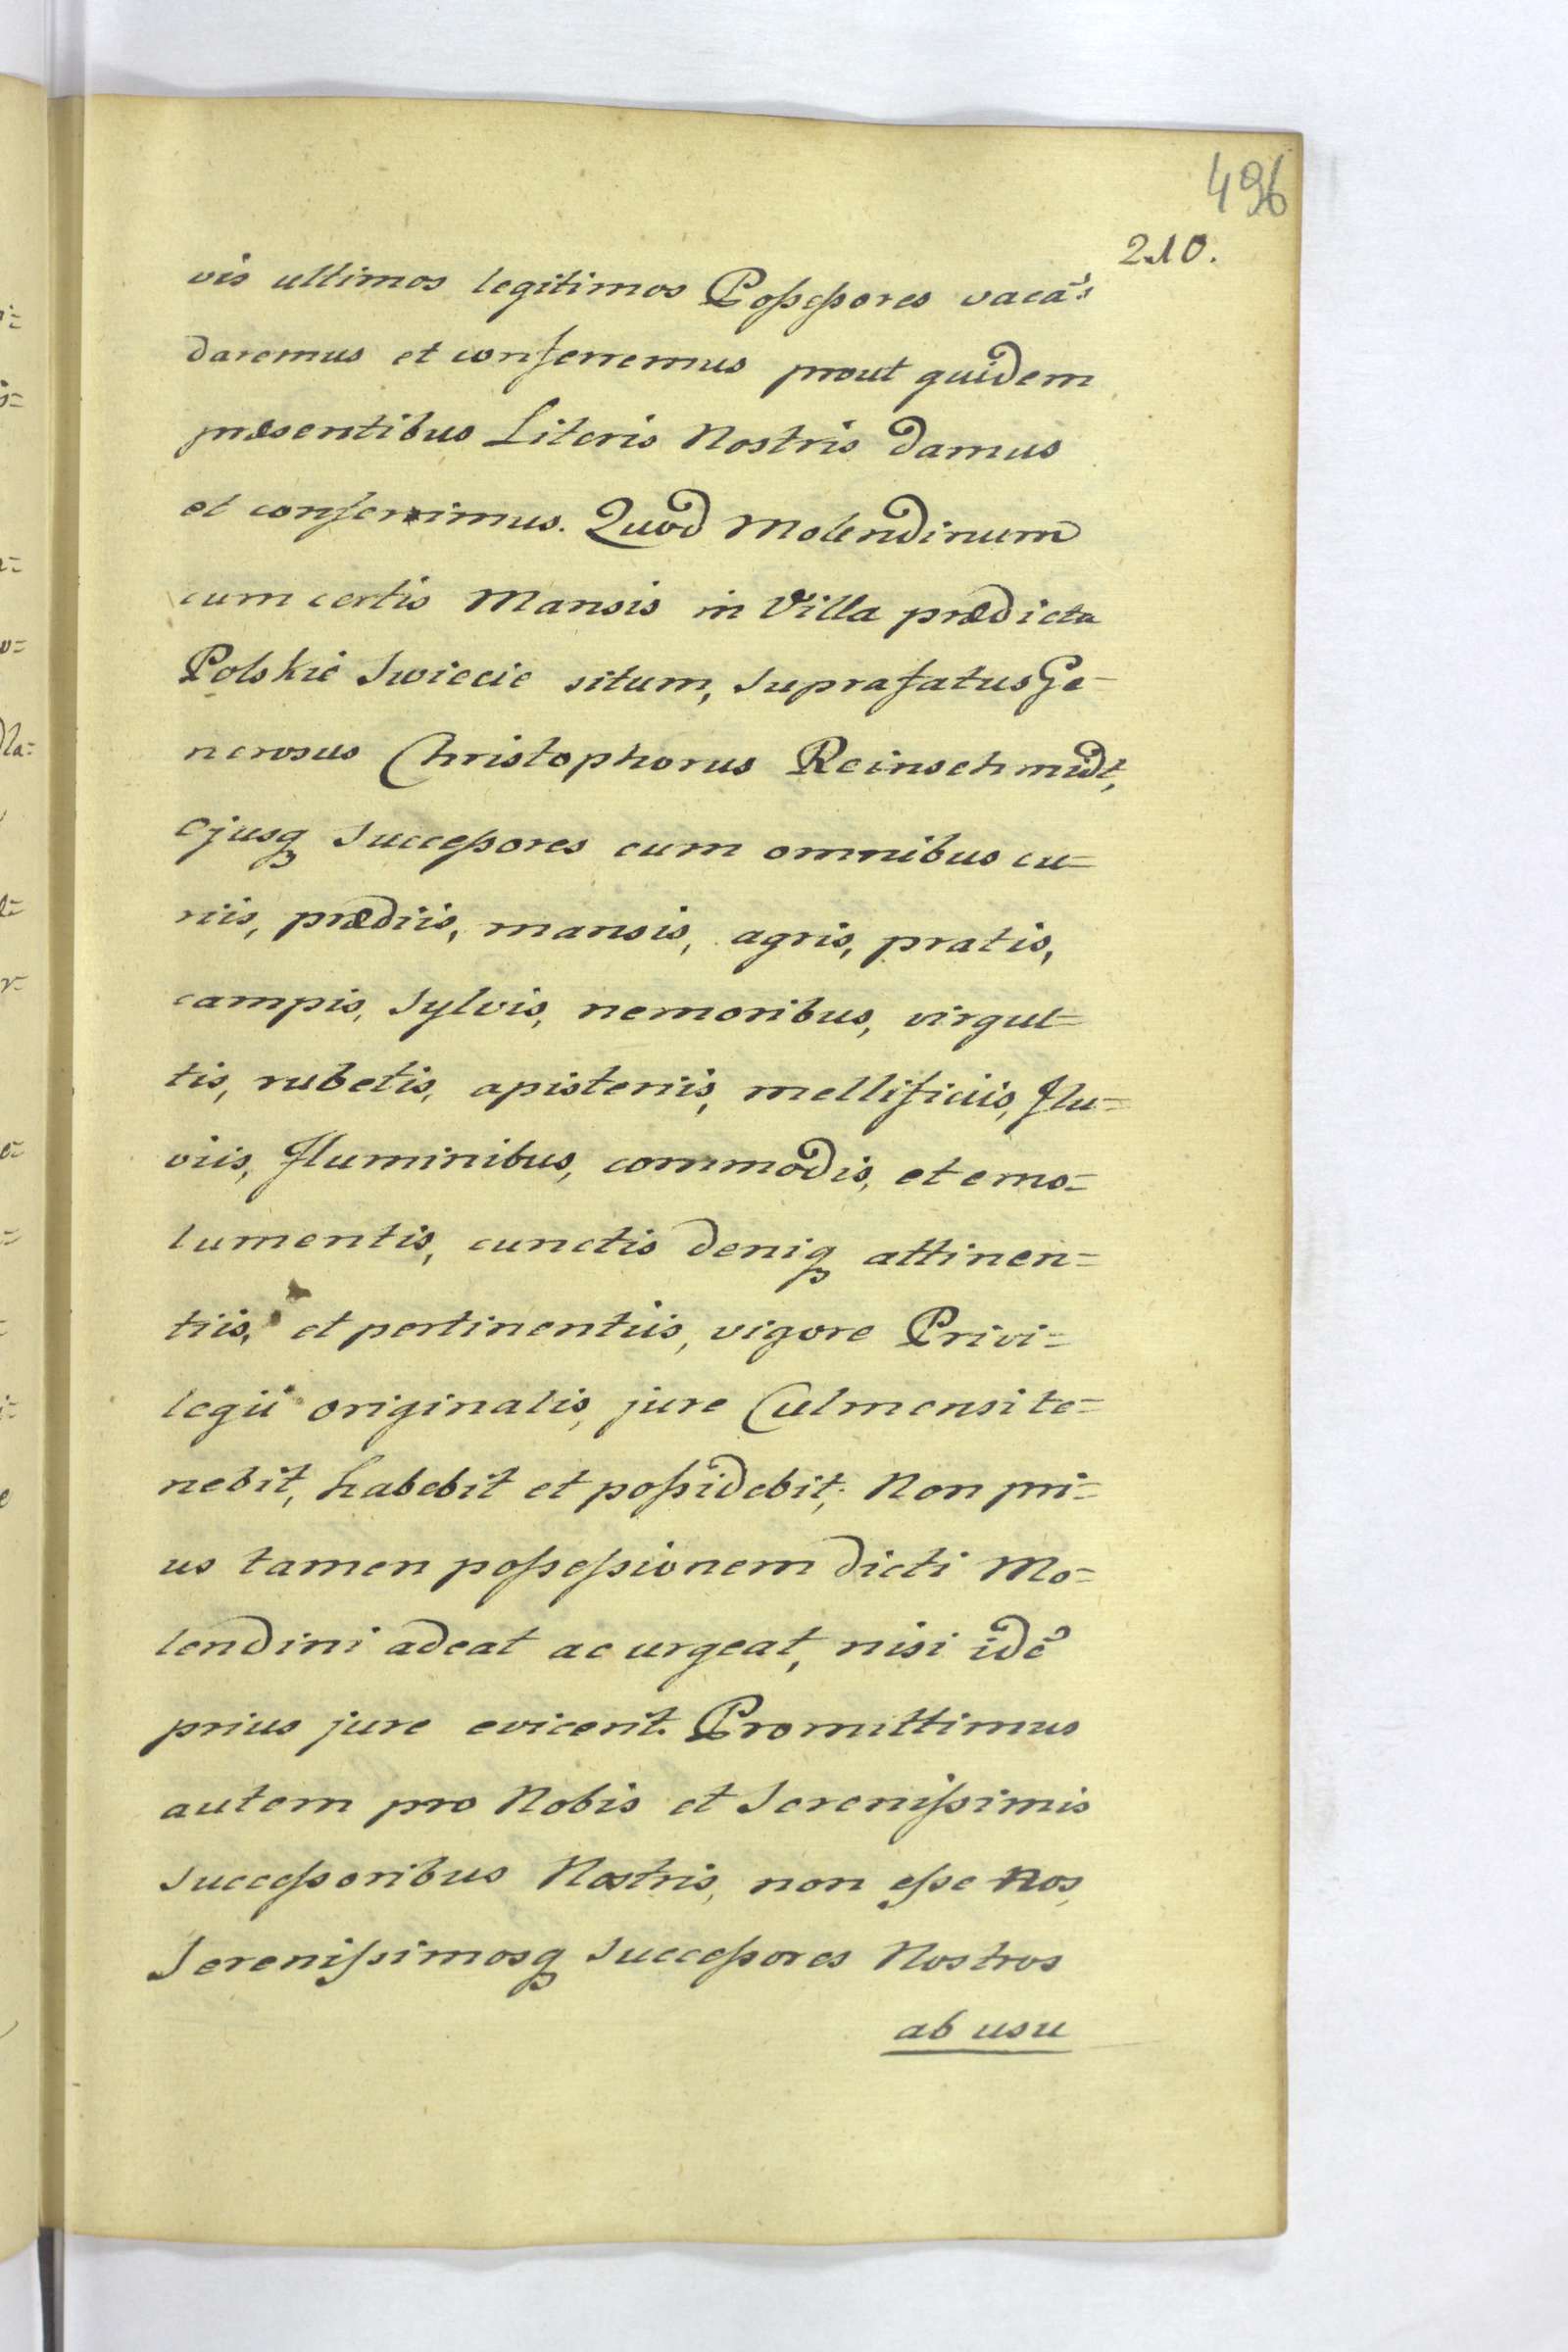 496
210.
vis ultimos legitimos Poſseſsores vacãs
daremus et conferremus prout quidem
præsentibus Literis Nostris damus
et conferimus. Quod Molendinum
cum certis Mansis in Villa prædicta
Polskie Swiecie situm, Suprafatus Ge-
nerosus Christophorus Reinschmidt,
ejusq Succeſsores cum omnibus cu=
riis, prædiis, mansis, agris, pratis,
campis, Sylvis, nemoribus, virgul=
tis, rubetis, apisteriis, mellificiis, flu=
viis, fluminibus, commodis, et emo=
lumentis, cunctis deniq attinen=
tiis, et pertinentiis, vigore Privi=
legii originalis, jure Culmensi te=
nebit, habebit et poſsidebit; Non pri=
us tamen poſseſsionem dicti Mo=
lendini adeat ac urgeat, nisi idẽ
prius jure evicerit. Promittimus
autem pro Nobis et Sereniſsimis
Succeſsoribus Nostris, non eſse Nos,
Sereniſsimosq Succeſsores Nostros
ab usu